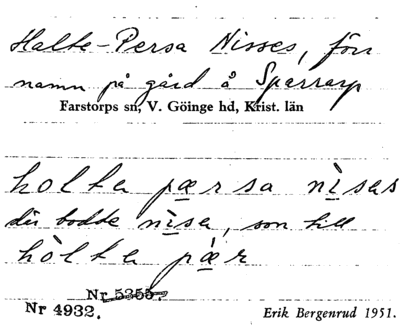 Halte-Persa Nisses, förr
namn på gård å Sparrarp
Farstorps sn, V. Göinge hd, Krist. län
holta pærsa nìsas
där bodde nìsa, son till
hòlta pǽr
Nr 5355.
Nr 4932.
Erik Bergenrud 1951.